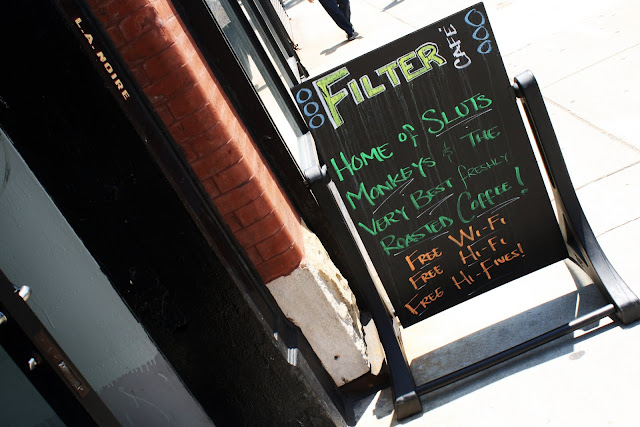 L.A. NOIRE
FILTER
CAFÉ
HOME OF SLUTS
MONKEYS & THE
VERY BEST FRESHLY
ROASTED COFFEE!
FREE WI-FI
FREE HI-FI
FREE HI-FIVES!